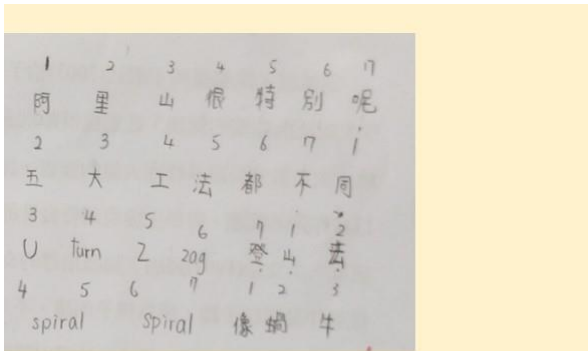 1 2 3 4 5 6 7
阿 里 山 很 特 別 呢
2 3 4 5 6 7 i
五 大 工 法 都 不 同
3 4 5 6 7 1 2
U turn Z zag 登 山 去
4 5 6 7 1 2 3
spiral spiral 像 蝸 牛